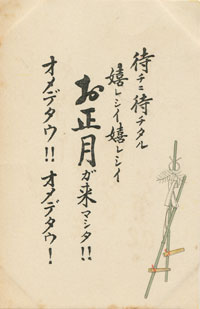 待チニ待チタル
嬉レシイ嬉レシイ
お正月ガ来マシタ!!
オメデタウ!!オメデタウ!